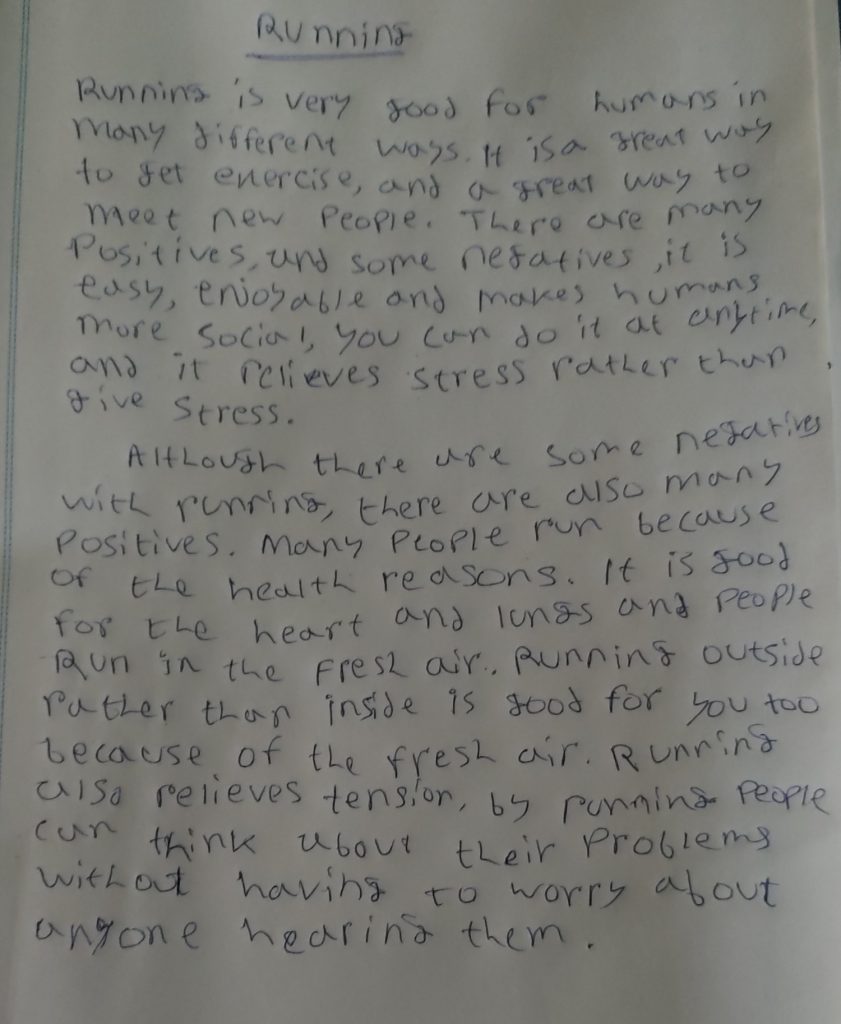 Running
Running is very good for humans in
many different ways. It is a great way
to get enercise, and a great way to
meet new people. There are many
Positives, and some negatives, it is
easy, enjoyable and makes humans
more social, you can do it at anytime,
and it relieves stress rather than
give stress.
Although there are some negatives
with running, there are also many
positives. Many people run because
of the health reasons. It is good
for the heart and lungs and people
Run in the fresh air. Running outside
rather than inside is good for you too
because of the fresh air. Running
also relieves tension, by running people
can think about their problems
without having to worry about
anyone hearing them.